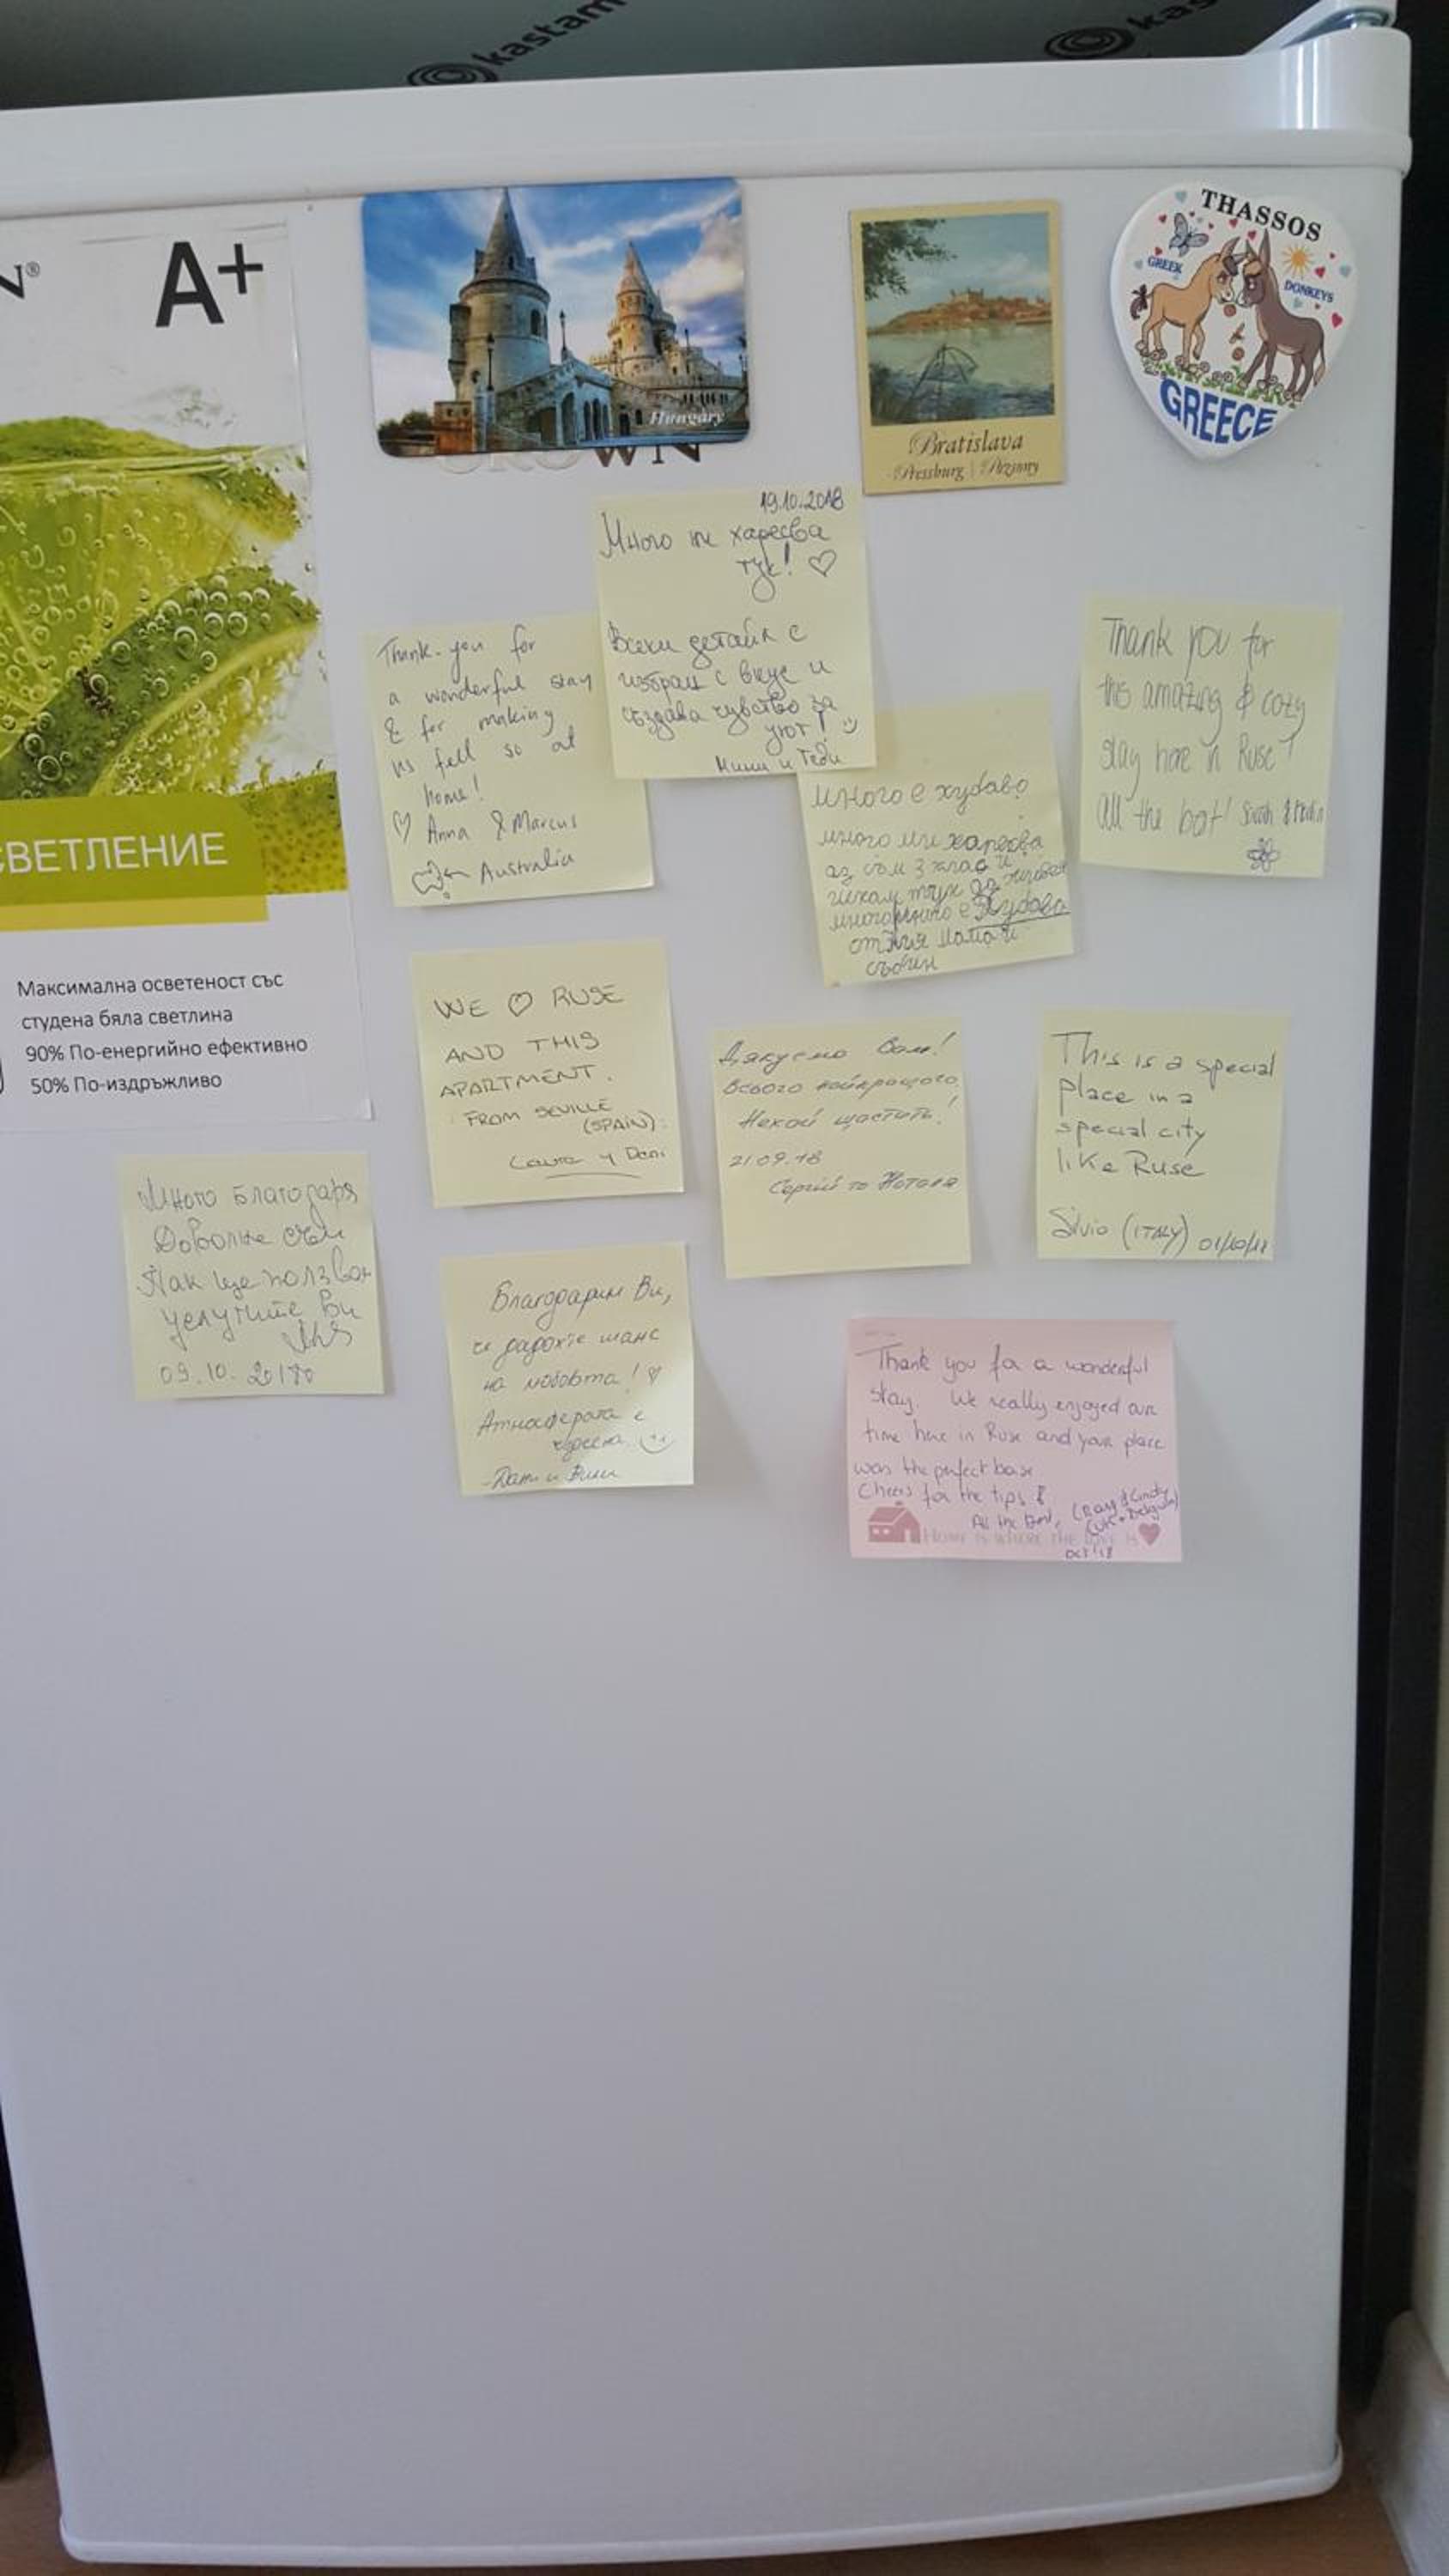 kastam
kas
N®
A+
СВЕТЛЕНИЕ
Максимална осветеност със
студена бяла светлина
90% По-енергийно ефективно
50% По-издръжливо
Hungary
CROWN
Bratislava
Pressburg | Pozsony
THASSOS
GREEK
DONKEYS
GREECE
19.10.2018
Много ни харесва
тук! ♡
Всеки детайл е
избран с вкус и
създава чувство за
уют! :)
Мими и Теди
Thank-you for
a wonderful stay
& for making
us fell so at
home!
♡ Anna & Marcus
Australia
Thank you for
this amazing & cozy
stay here in Ruse!
All the best! Sarah &
много е хубаво
много ми харесва
аз съм 3 клас и
искам тук да живея
е Хубаво
от мама и
WE ♡ RUSE
AND THIS
APARTMENT.
FROM SEVILLE
(SPAIN):
Laura y Dani
Дякуємо Вам!
Всього найкращого.
Нехай щастить!
21.09.18
Сергій та Наталя
This is a special
place in a
special city
like Ruse
Silvio (ITALY) 01/10/18
Много Благодаря
Доволна съм
Пак ще ползвам
услугите Ви
09.10.
Благодарим Ви,
че дадохте шанс
на любовта! ♡
Атмосферата е
чудесна :)
Thank you for a wonderful
stay. We really enjoyed our
time here in Ruse and your place
was the perfect base.
Cheers for the tips!
All the best, (Ray & Cindy
(UK + Belgium)
HOME IS WHERE THE LOVE IS
Oct '18